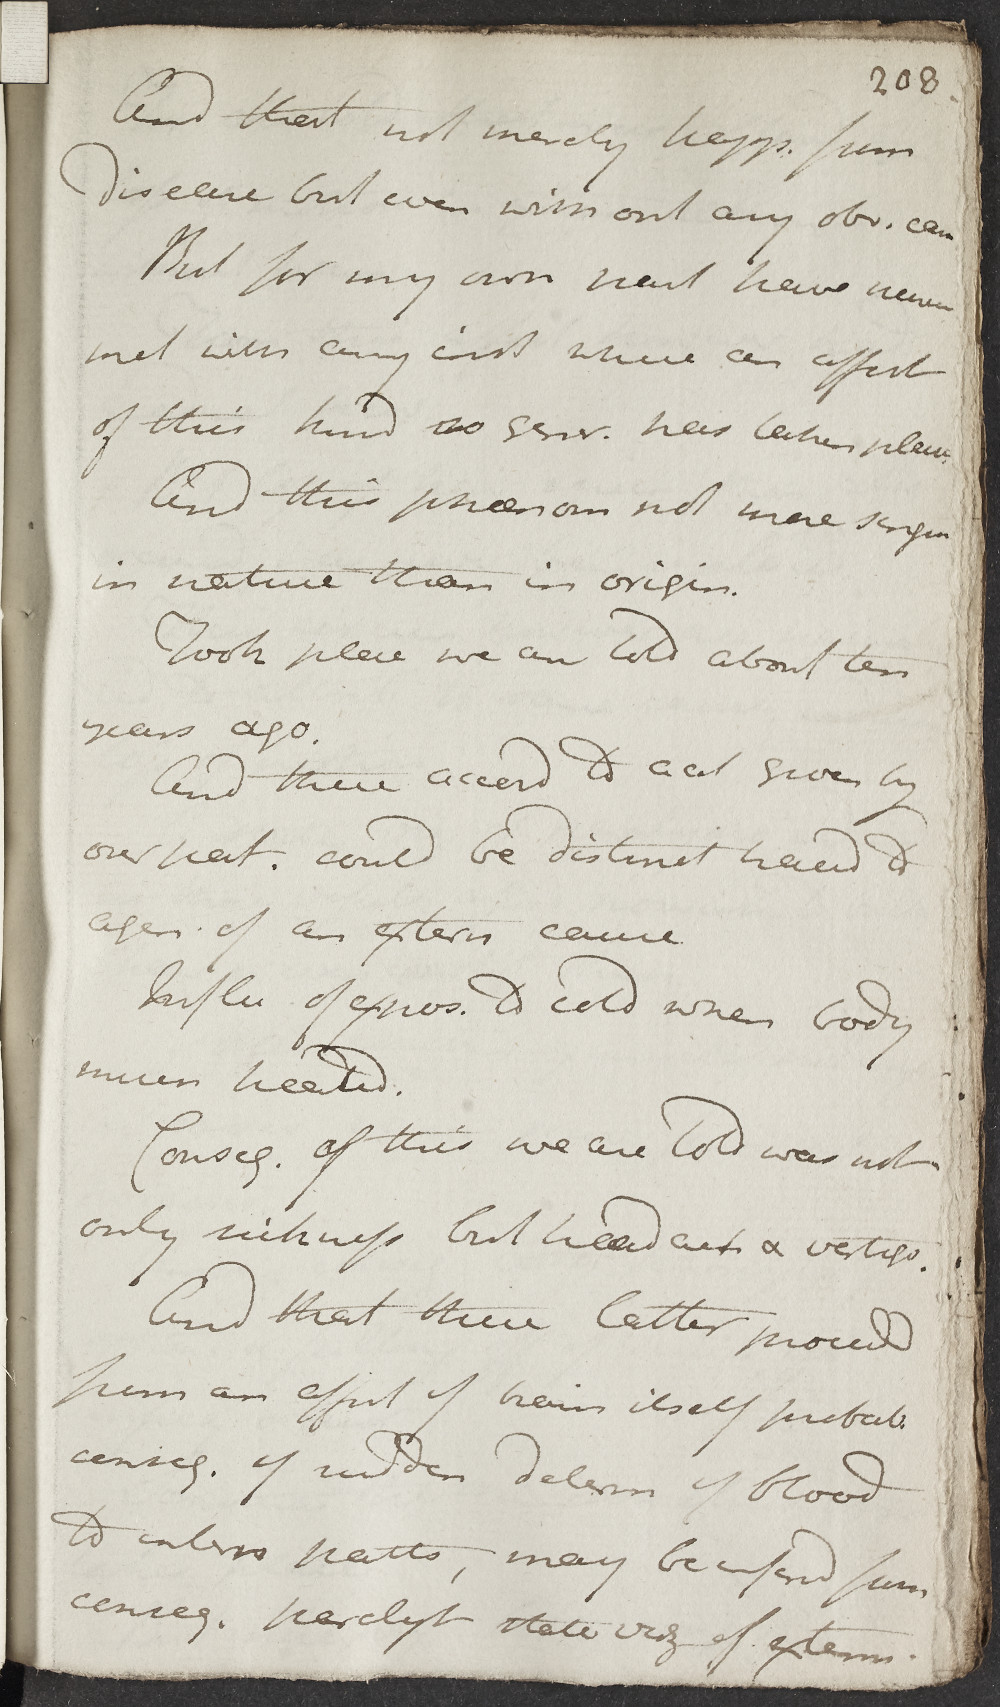 208.
And that not merely happ. from
Disease but even without any obv. cau
But for my own part have never
met with any inst where an affect
of this kind so gener. has taken place.
And this phaenom not more singu
in nature than in origin.
Took place we are told about ten
years ago.
And there accord to act given by
our pat. could be distinct traced to
agen. of an extern cause
Influ of expos. to cold when body
much heated.
Conseq. of this we are told was not
only sickness but headach & vertigo.
And that these latter proceedd
from an affect of brain itself probab.
conseq. of sudden determ of blood
to intern parts, may be inferd from
conseq. paralyt state vizt of extrem.